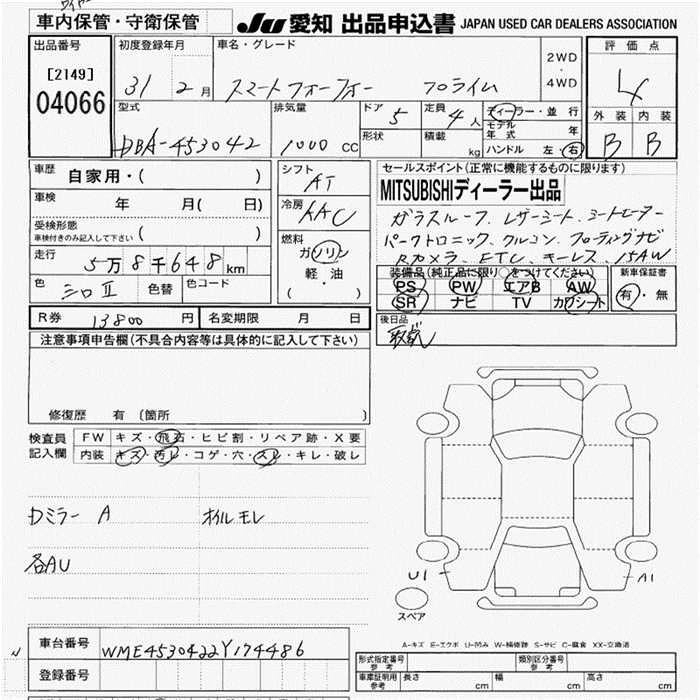 車内保管・守衛保管
JU 愛知 出品申込書 JAPAN USED CAR DEALERS ASSOCIATION
出品番号
[2149]
04066
初度登録年月
31 2月
車名・グレード
スマートフォーフォー プライム
2WD
・
4WD
評価点
4
外装 内装
B B
型式
DBA-453042
排気量
1000 CC
ドア
5
形状
定員
4人
積載
kg
ディーラー・並行
モデル年式 年
ハンドル 左・右
車歴
自家用・( )
車検
年 月( 日)
受検形態
車検付きのみ記入して下さい( )
走行
5万8千648km
色
シロII
色替
色コード
シフト
AT
冷房
AAC
燃料
ガソリン
軽・油
( ・ )
セールスポイント(正常に機能するものに限ります)
MITSUBISHIディーラー出品
ガラスルーフ、レザーシート、シートヒーター
パークトロニック、クルコン、フローティングナビ
Rカメラ、ETC、キーレス、15AW
装備品(純正品に限り○をつけてください)
PS PW エアB AW
SR ナビ TV カワシート
新車保証書
有・無
R券 13800円
名変期限 月 日
後日品
取説
注意事項申告欄(不具合内容等は具体的に記入して下さい)
修復歴 有 〔箇所 〕
検査員記入欄
FW キズ・飛石・ヒビ割・リペア跡・X要
内装 キズ・汚レ・コゲ・穴・スレ・キレ・破レ
Dミラー A
オイルモレ
各AU
U1
A1
スペア
A-キズ E-エクボ U-凹み W-補修跡 S-サビ C-腐食 XX-交換済
車台番号 WME4530422Y174486
登録番号
型式指定番号 参考
類別区分番号 参考
車庫証明用 参考 長さ cm 幅 cm 高さ cm